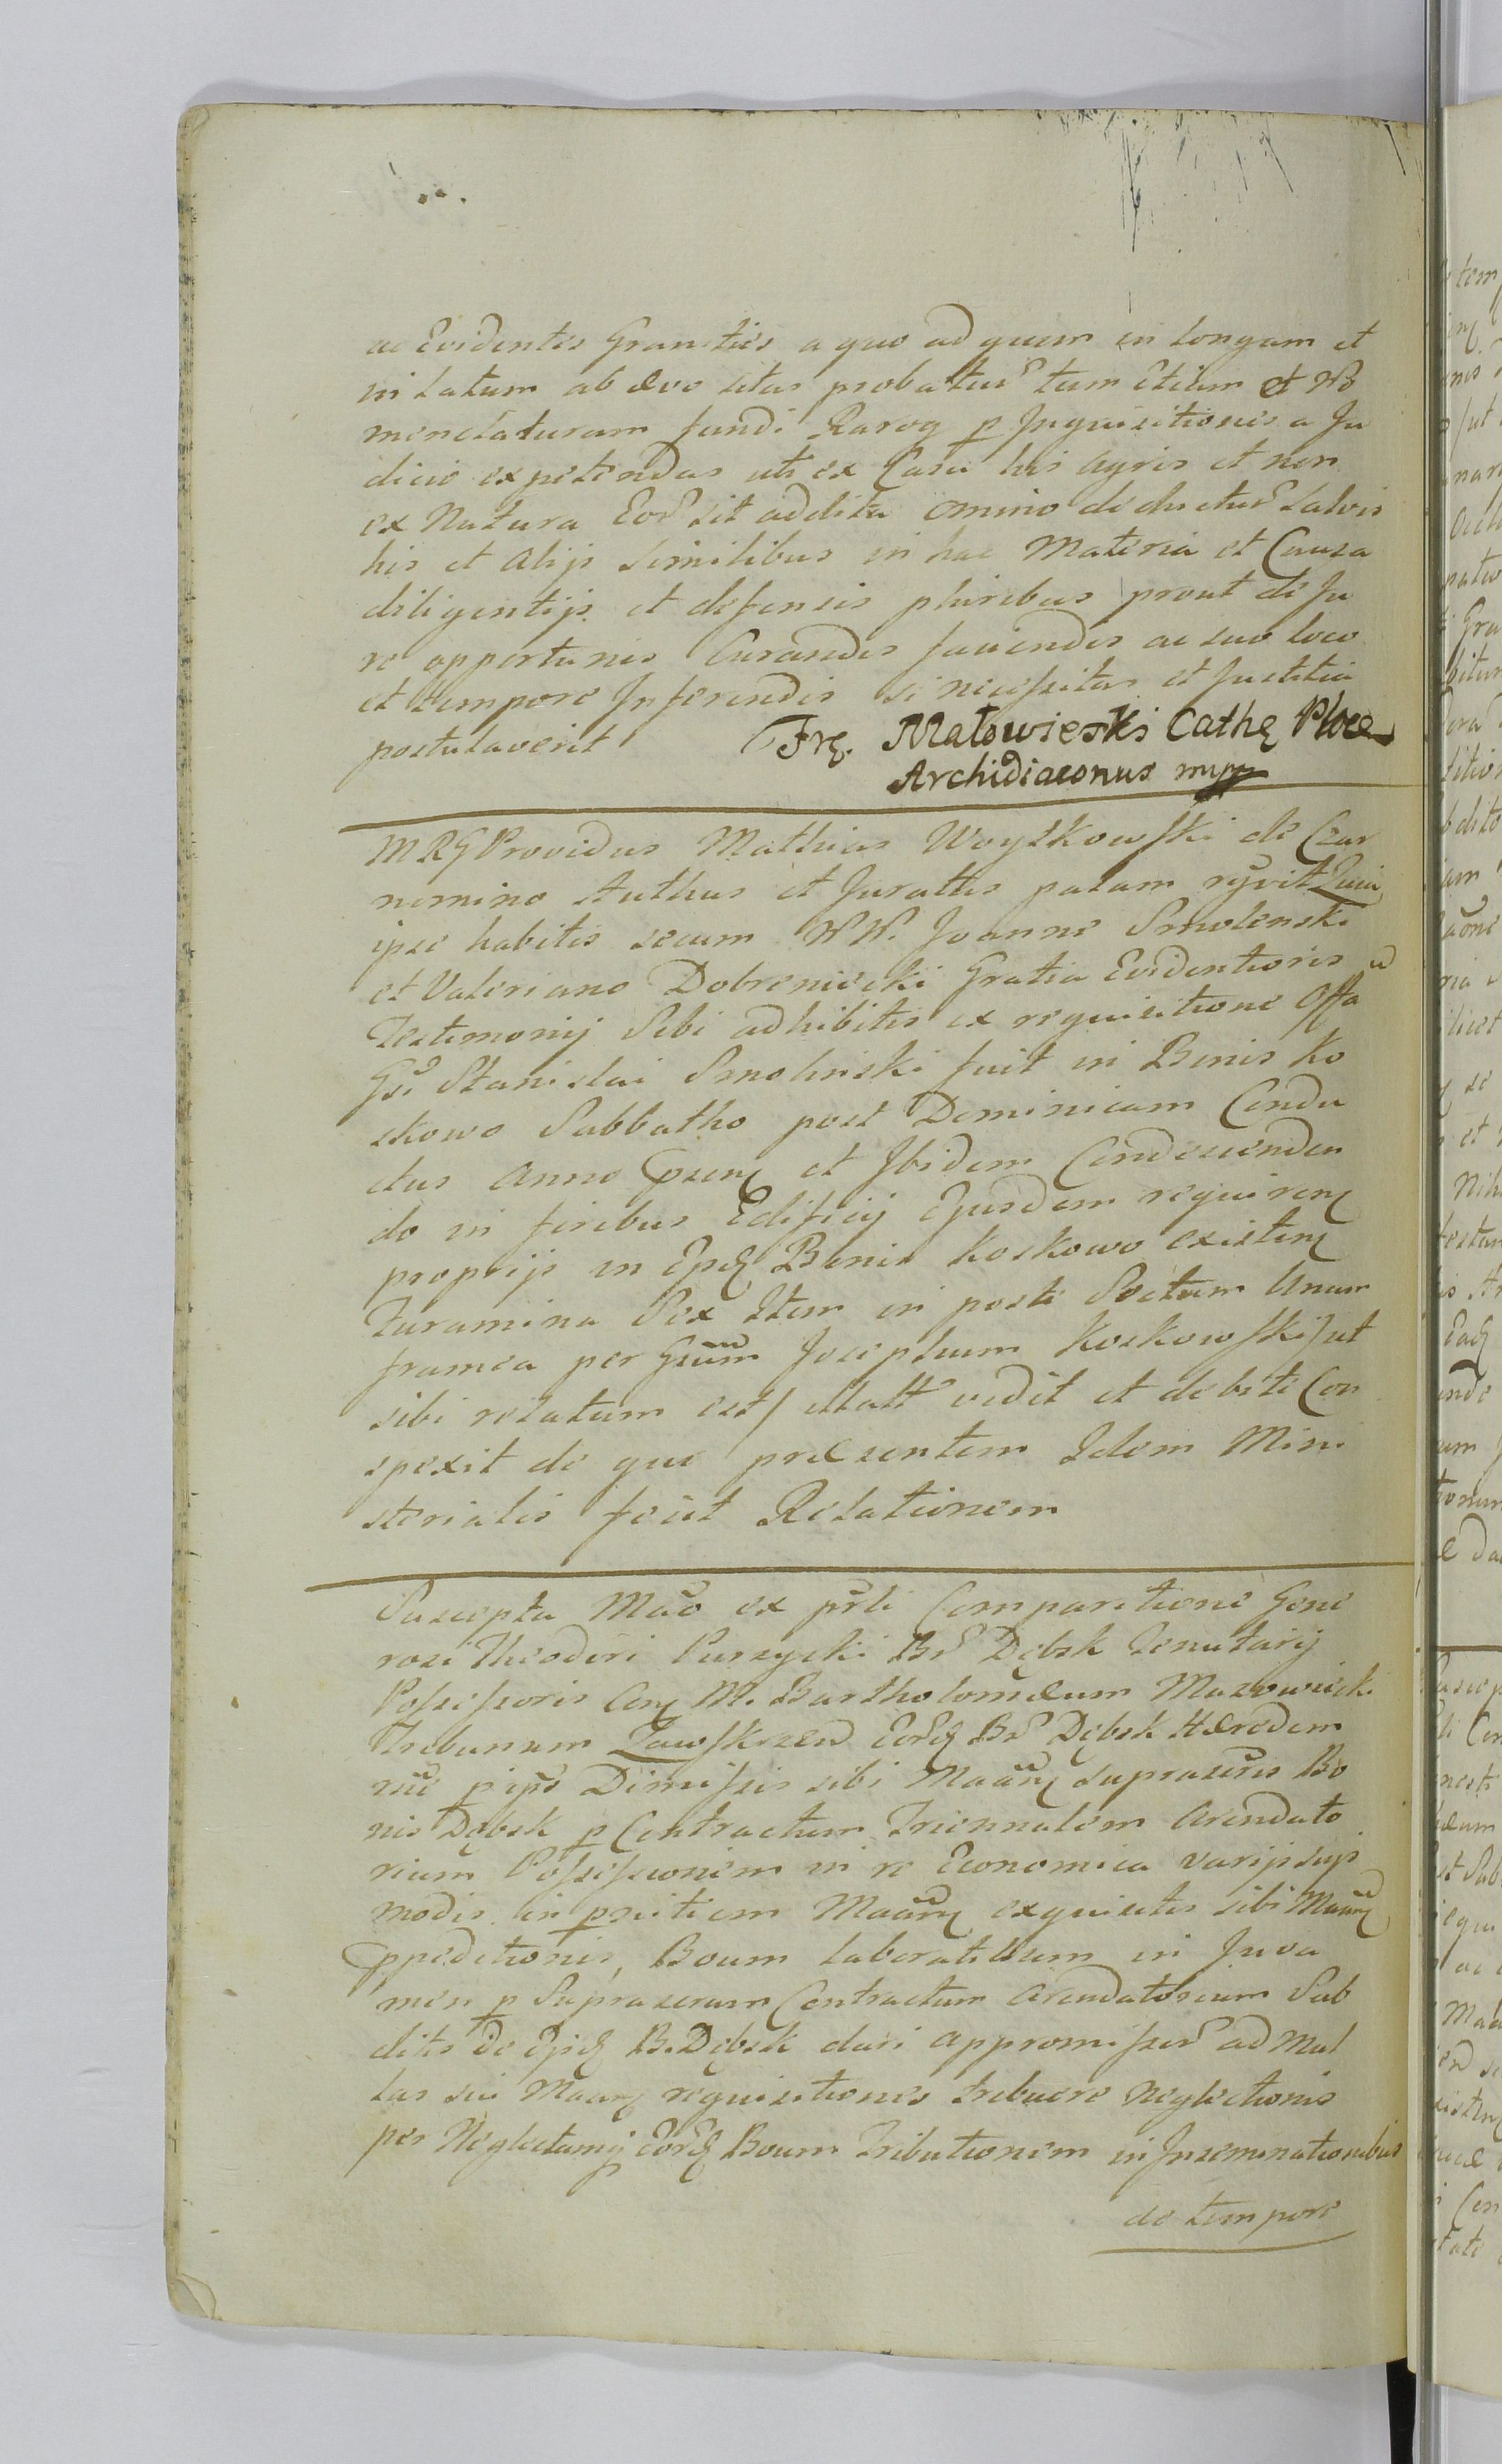 ac Evidentes Granities a quo ad quem in longum et
in latum ab ævo sitas probatur tum etiam et No
menclaturam fundi Rarog p Inquisitiones a Ju
dicio expetendas uti ex Casu his agris et non
ex Natura Eor sit addita omino deducetur Salvis
his et alijs similibus in hac Materia et Causa
diligentijs et defensis pluribus prout de Ju
re opportunis Curandis faciendis ac suo loco
et tempore Inferendis si necessitas et Justitia
postulaverit
Frę. Małowieski Cathę Ploce
Archidiaconus mpp
MRG Providus Mathias Woyskowski de Czar
nomino Authus et Juratus palam
ipse habitis secum NN. Joanne Smolenski
et Valeriano Dobrenieckii Gratia Evidentioris
Testimonij Sibi adhibitis ex requisitione Offa
Gsi Stanislai Smolinski fuit in Bonis Ko
skowo Sabbatho post Dominicam Condu
ctus anno et Ibidem Condescenden
do in foribus Edificij Ejusdem requiren
proprijs in Bonis Koskowo existen
Foramina Sex Item in poste Sectum Unum
framea per Gsum Josephum Koskowski ut
sibi relatum est/ vidit et debite Con
spexit de quo præsentem Idem Mini
sterialis fecit Relationem
Suscepta Mão ex prli Comparitione Gene
rosi Theodori Purzycki Br Dębsk Tenutarij
Possessoris Con M. Bartholomæum Mazowiecki
Tribunum Zawskrzen Br Dębsk Hæredem
p Dimissis sibi supraseris Bo
nis Dębsk p Contractum Triennalem Arendato
rium Possessionem in re Economica varijs
modis in exquisitis sibi
Boum laboratilium in Juva
men p Supraserum Contractum Arendatorium Sub
ditis de B. Dębsk dari appromisser ad Mul
tas sui requisitiones tribuere Neglectionis
per Boum Tributionem in Inseminationibus
de tempore